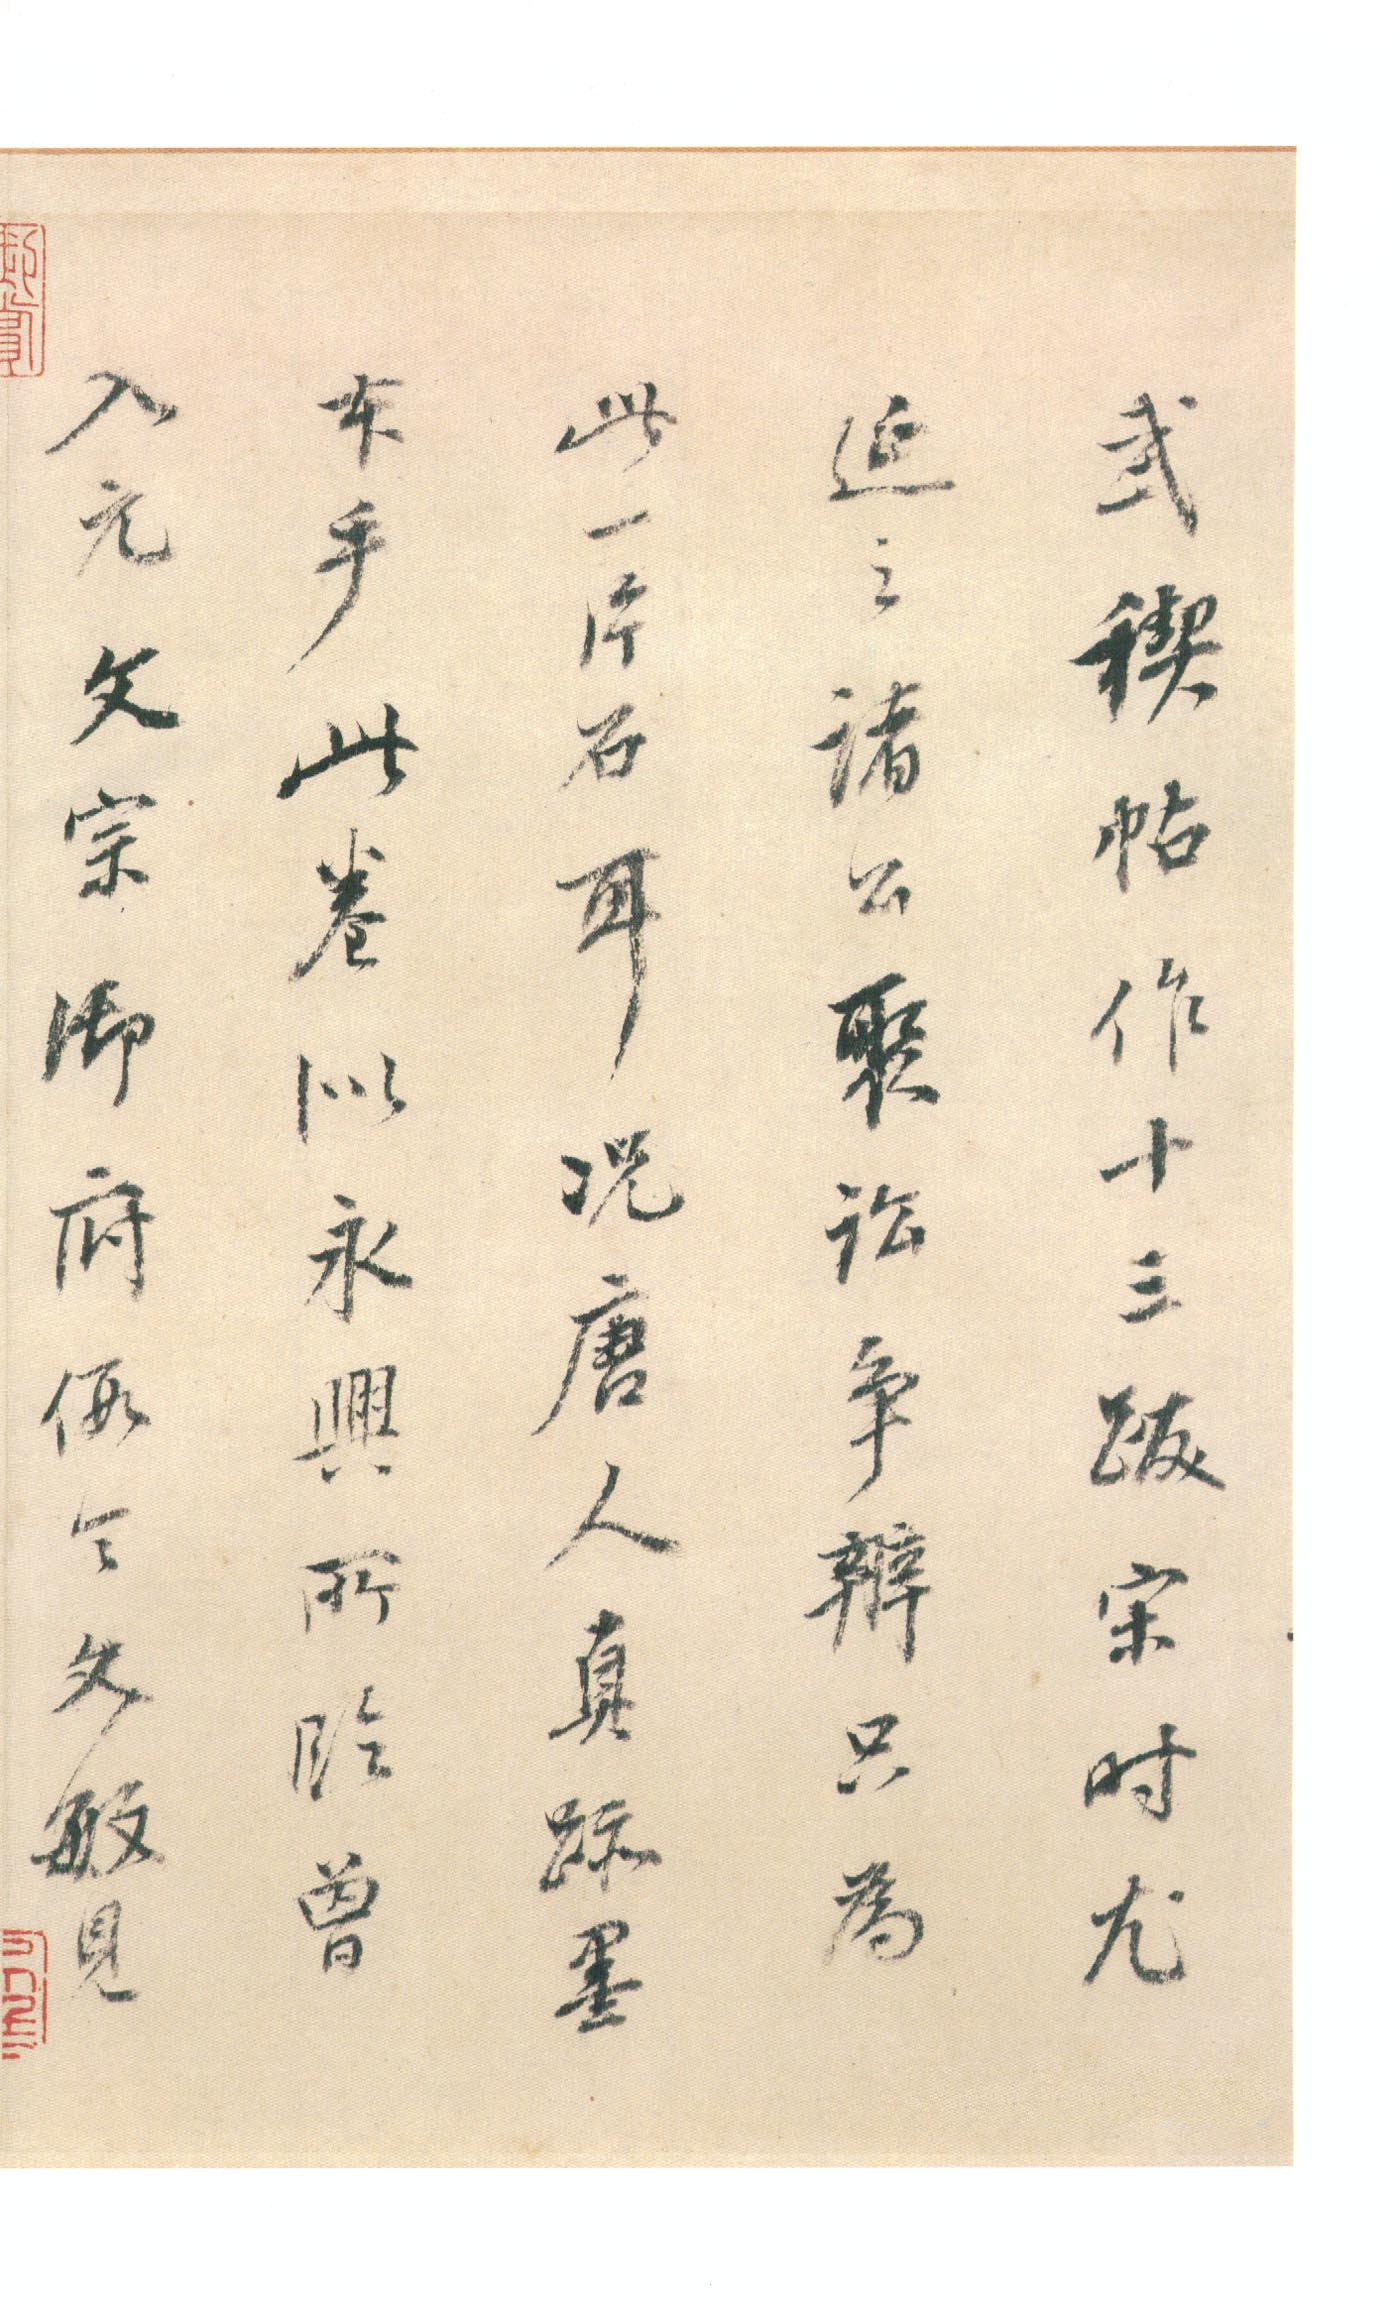 武禊帖作十三跋宋时尤
延之諸公聚訟争辨只為
此一片石耳况唐人真跡墨
本手此卷似永興所臨曾
入元文宗御府假令文敏見